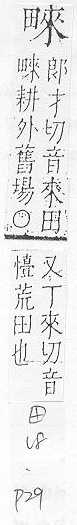 郎才切音來田
耕外舊場〇
又丁來切音
懛荒田也
田
U8
.
P29